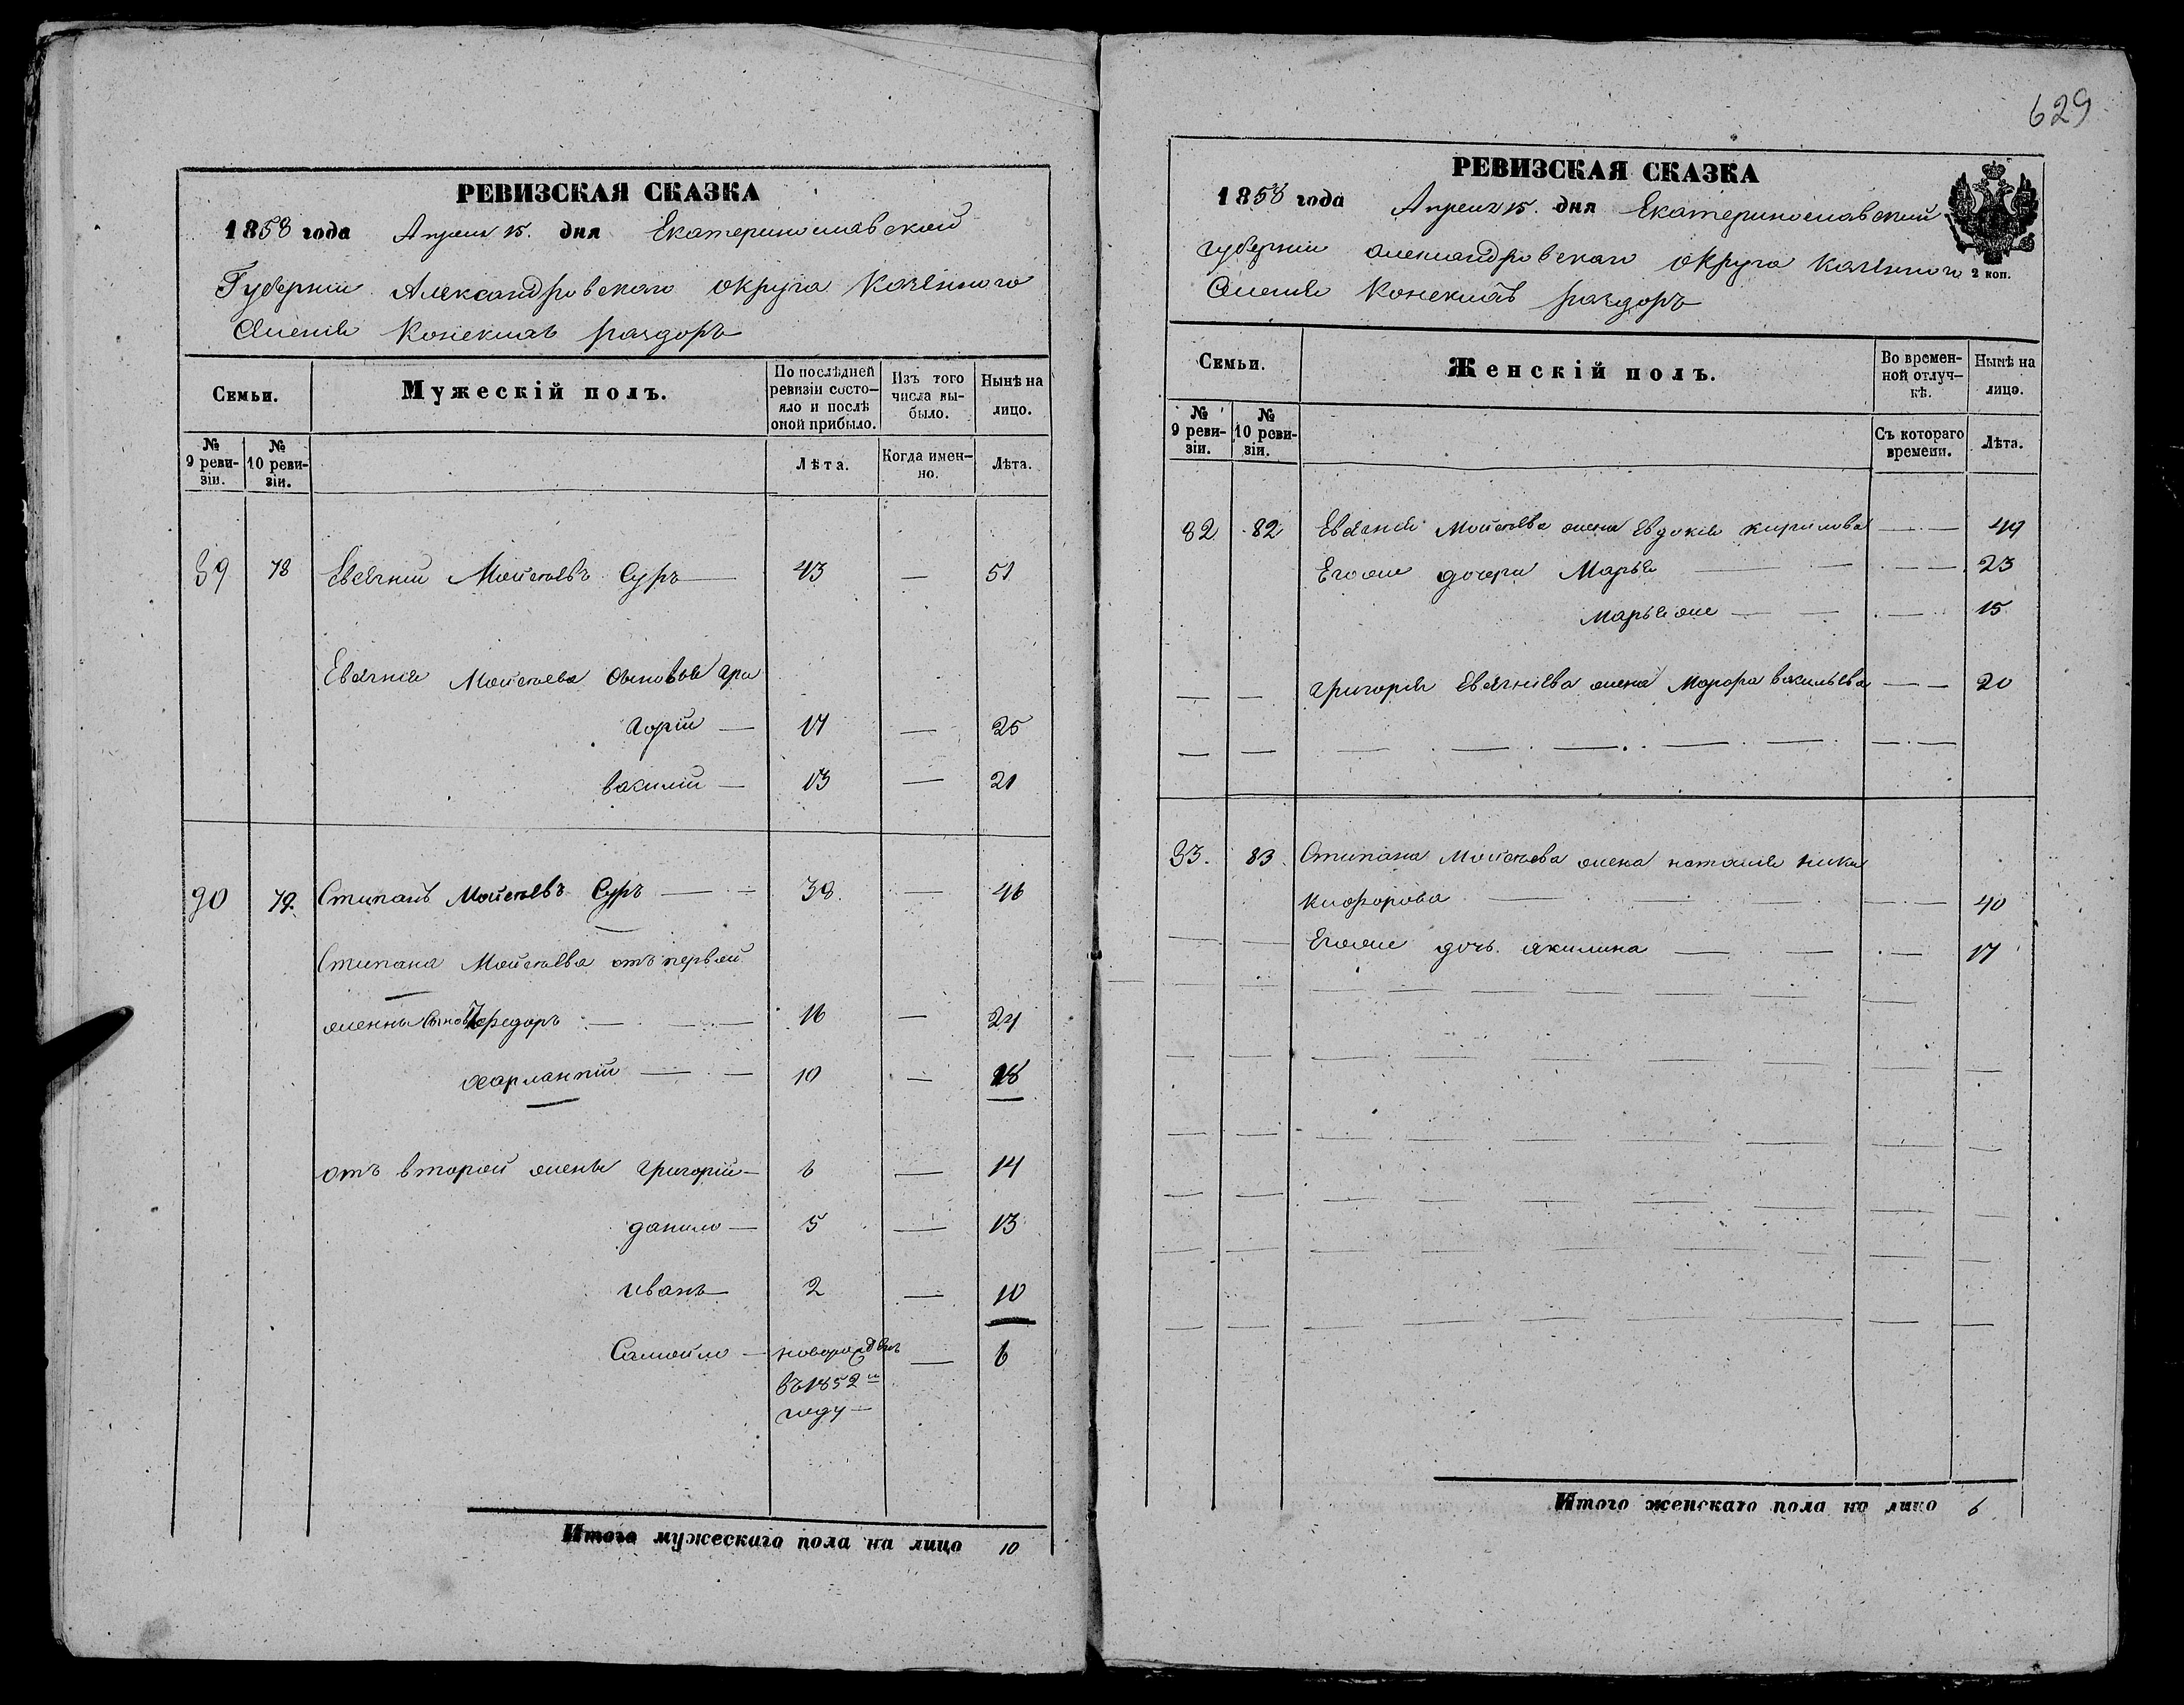 РЕВИЗСКАЯ СКАЗКА
1858 года Апреля 15. дня Екатеринославской
Губерніи Александровскаго округа Казённого
селенія Конскихъ раздоръ
Семьи.
Мужескій полъ.
По послѣдней ревизіи состояло и послѣ оной прибыло.
Изъ того числа выбыло.
Нынѣ на лицо.
№ 9 ревизіи.
№ 10 ревизіи.
Лѣта.
Когда именно.
Лѣта.
39 78 Евсѣгній Мойсѣевъ Суръ — 43 — 51
Евсѣгнія Мойсѣева сыновья Гри
горій — 17 — 25
василій — 13 — 21
90 79 Степанъ Мойсѣевъ Суръ — 38 — 46
Степана Мойсѣева отъ первой
жены сыновья федоръ — 16 — 24
харлампій — 10 — 18
отъ второй жены григорій — 6 — 14
данило — 5 — 13
иванъ — 2 — 10
Самойло — новорожден — 6
въ 1852 м
году —
Итого мужескаго пола на лицо 10
629
РЕВИЗСКАЯ СКАЗКА
1858 года Апреля 15. дня Екатеринославский
губерніи александровскаго округа казённого 2 коп.
селенія Конскихъ раздоръ
Семьи.
Женскій полъ.
Во временной отлучкѣ.
Нынѣ на лицо.
№ 9 ревизіи.
№ 10 ревизіи.
Съ котораго времени.
Лѣта.
82 82 Евсѣгнія Мойсѣева жена Евдокія кирилова — 49
Егоже дочери Марья — 23
марья же — 15
григорія Евсѣгніева жена Марфа васильева — 20
33. 83. Степана Мойсѣева жена наталія ники
кифорова — 40
Егоже дочь акилина — 17
Итого женскаго пола на лицо 6